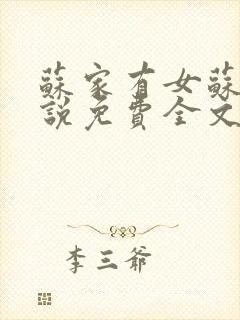 蘇家有女蘇
說免費全文
李三爺